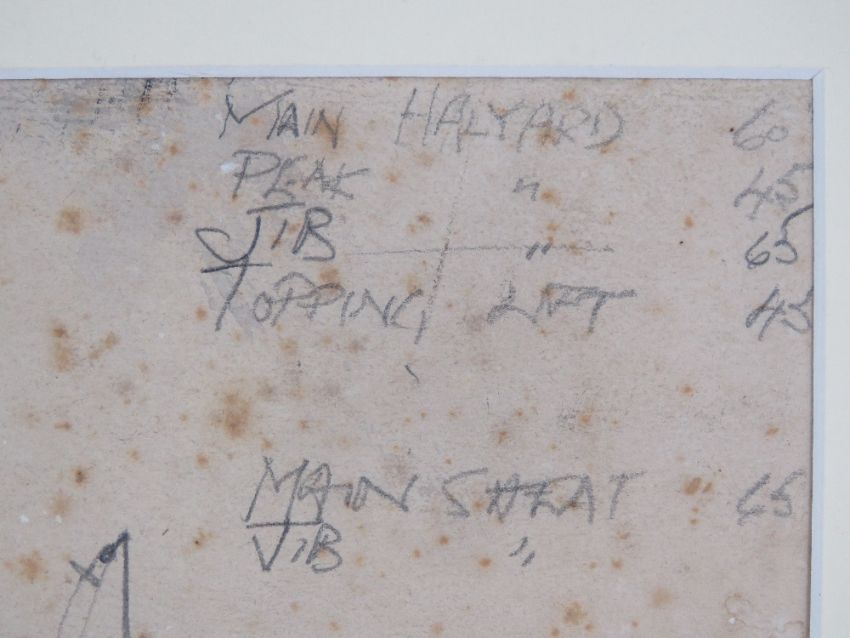 MAIN HALYARD 60
PEAK " 45
JIB " 65
TOPPING LIFT 45
MAIN SHEAT 65
JIB "